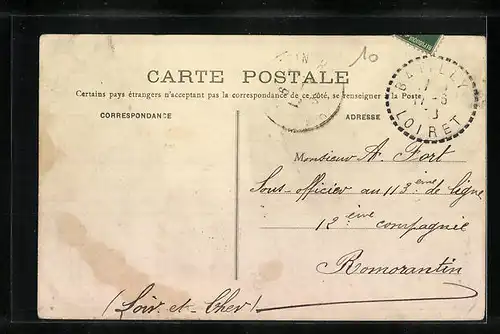 10
CARTE POSTALE
Certains pays étrangers n'acceptant pas la correspondance de ce côté, se renseigner à la Poste
CORRESPONDANCE
ADRESSE
LOIRET
17-6
Monsieur A. Port
Sous-officier au 113ème de ligne
12ème compagnie
Romorantin
(Loir-et-Cher)